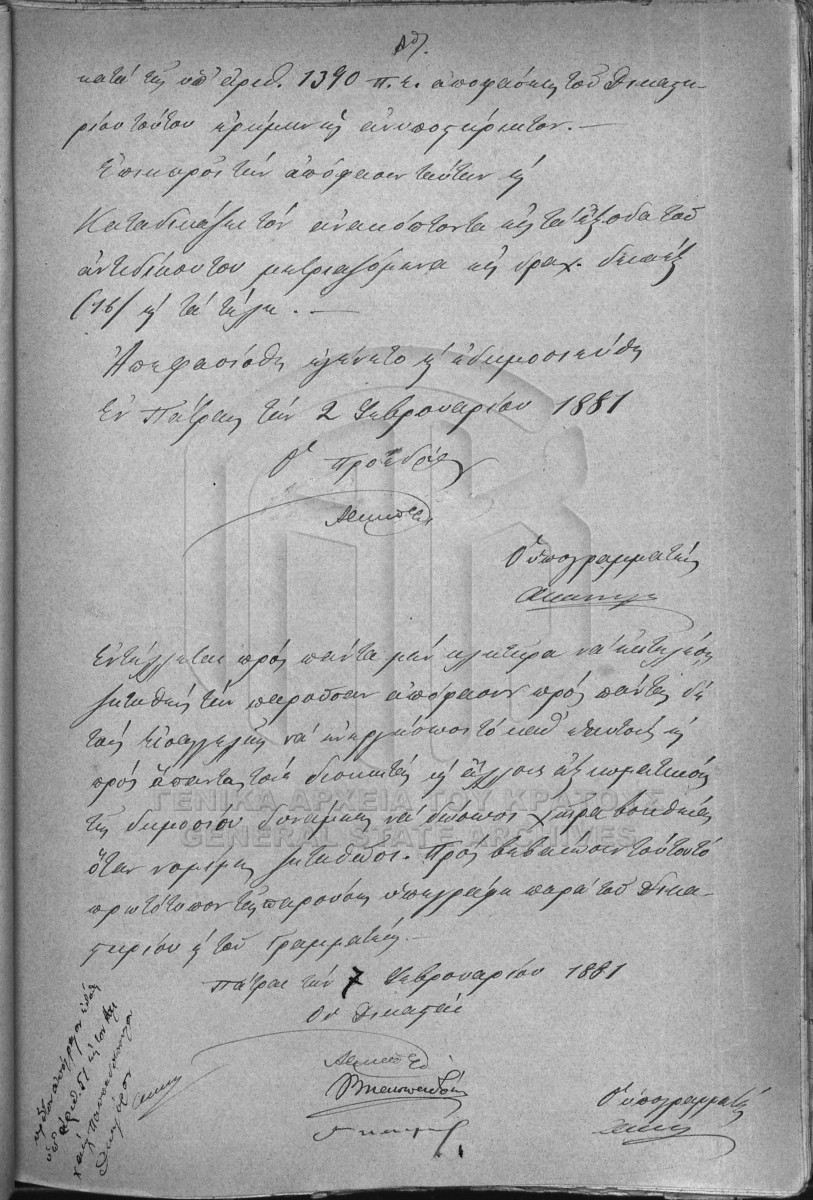 κατά της υπ' αριθ. 1390 π. έ. αποφάσεως του Δικαστη-
ρίου τούτου ερήμην ως ανυποστήρικτον. —
Επικυροί την απόφασιν ταύτην κ'
Καταδικάζει τον ανακόπτοντα εις τα έξοδα του
αντιδίκου του μετριαζόμενα εις δραχ. δεκαέξ
(16) κ' τα τέλη. —
Απεφασίσθη εγένετο κ' εδημοσιεύθη
Εν Πάτραις την 2 Φεβρουαρίου 1881
Ο Πρόεδρος
Ο υπογραμματεύς
Εντέλλεται προς πάντα μεν κλητήρα να εκτελέση
ζητηθείς την παρούσαν απόφασιν προς πάντας δε
τους Εισαγγελείς να ενεργήσωσι το καθ' εαυτούς κ'
προς άπαντας τους διοικητάς κ' άλλους αξιωματικούς
της δημοσίου δυνάμεως να δώσωσι χείρα βοηθείας
όταν νομίμως ζητηθώσι. Προς βεβαίωσιν τούτου το
πρωτότυπον της παρούσης υπεγράφη παρά του Δικα-
στηρίου κ' του Γραμματέως. —
Πάτραι την 7 Φεβρουαρίου 1881
Οι Δικασταί
Ο υπογραμματεύς
ΓΕΝΙΚΑ ΑΡΧΕΙΑ ΤΟΥ ΚΡΑΤΟΥΣ
GENERAL STATE ARCHIVES